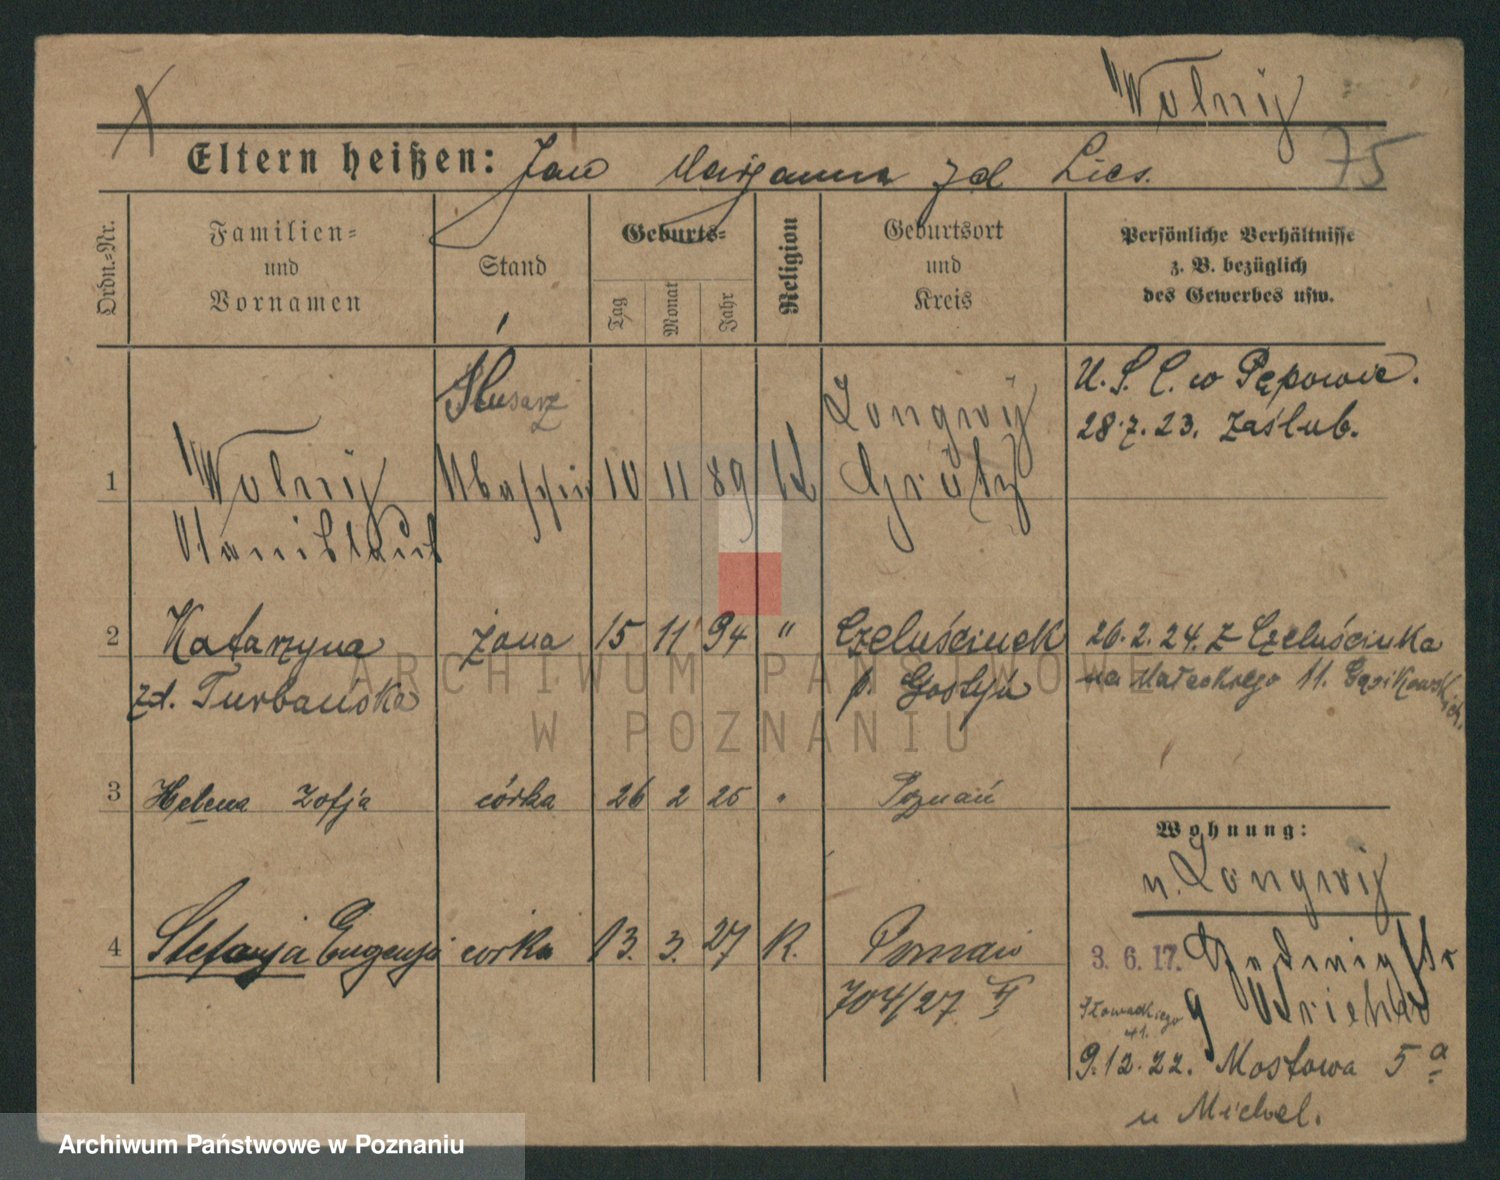 Wolny
75
Eltern heißen: Jan Maryanna zd Lies.
Ordn.=Nr.
Familien=
und
Vornamen
Stand
Geburts=
Tag
Monat
Jahr
Religion
Geburtsort
und
Kreis
Persönliche Verhältnisse
z. B. bezüglich
des Gewerbes usw.
Ślusarz
U. S. C. w Pępowie.
28.7.23. zaślub.
1 Wolny 10 11 89 Longwy
Stanislaus Grätz
2 Katarzyna żona 15 11 94 " Czeluścinek 26.2.24. z Czeluścinka
zd. Turbańska p. Gostyń na Małeckiego 11.
3 Helena Zofja córka 26 2 25 " Poznań
Wohnung:
n. Longwy
4 Stefanja Eugenja corka 13. 3. 27 K. Poznań
704/27 VI
3. 6. 17.
Słowackiego
41.
9.12.22. Mostowa 5 a
u Michel.
ARCHIWUM PAŃSTWOWE
W POZNANIU
Archiwum Państwowe w Poznaniu